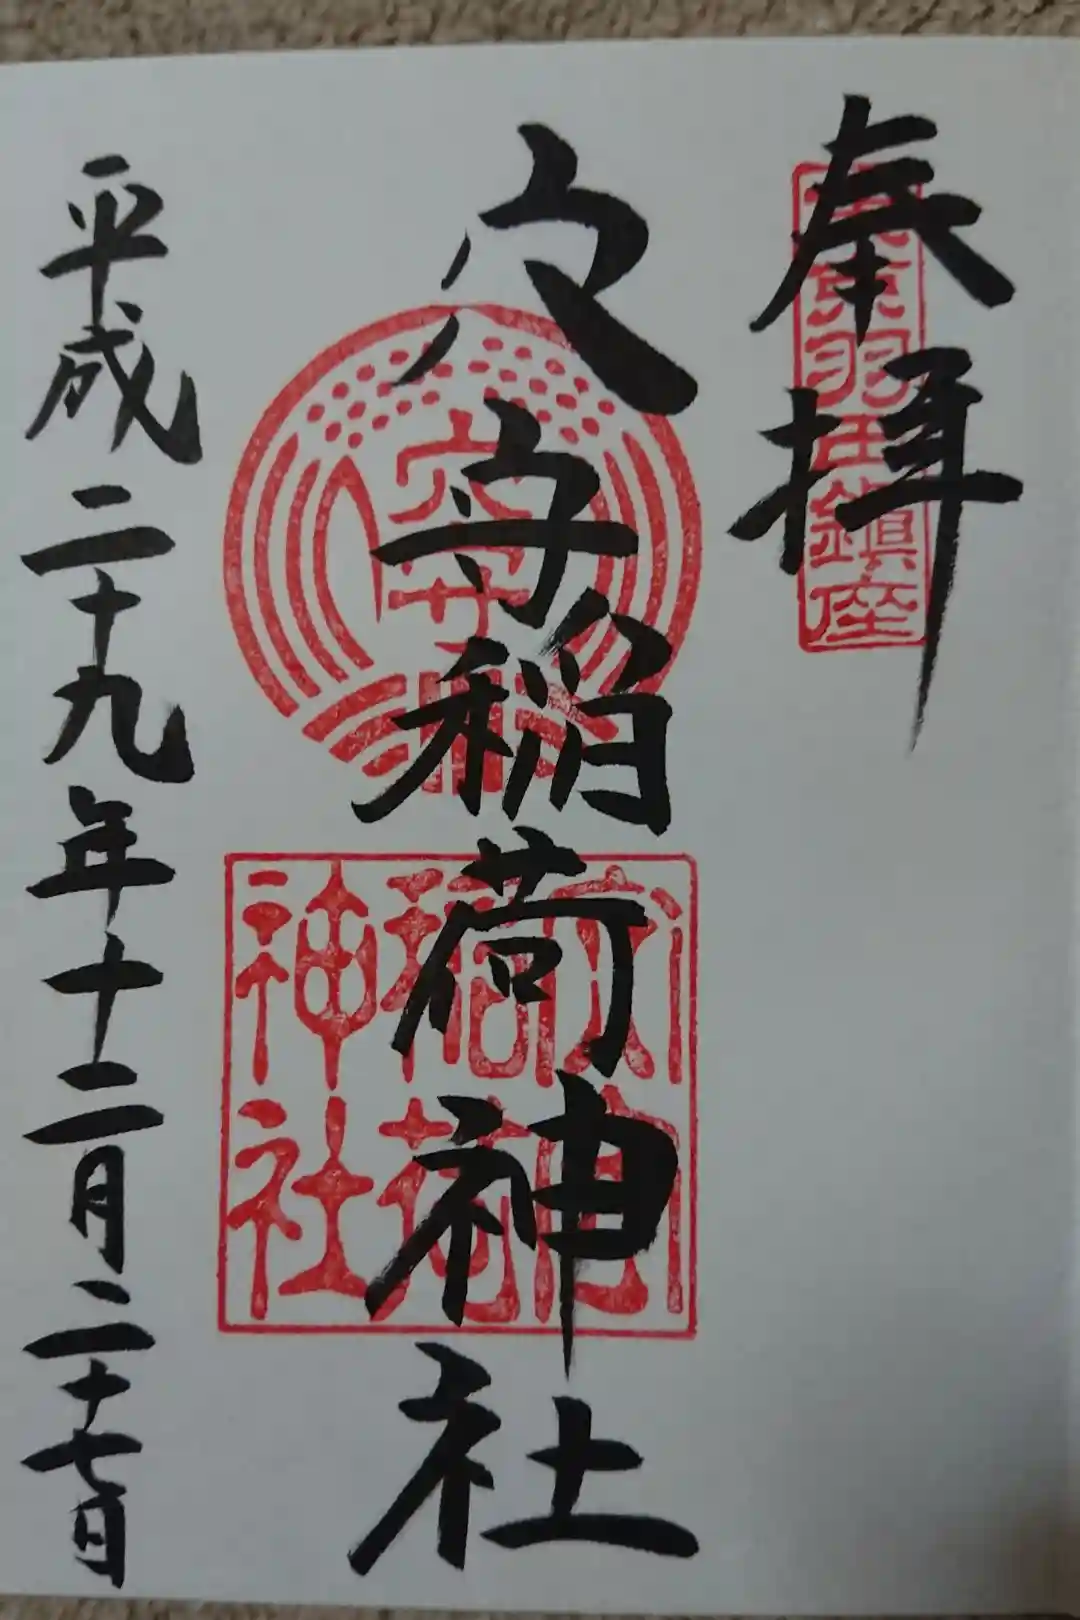 奉拝
東京羽田鎮座
穴守稲荷神社
穴守
穴守
稲荷
神社
平成二十九年十二月二十七日